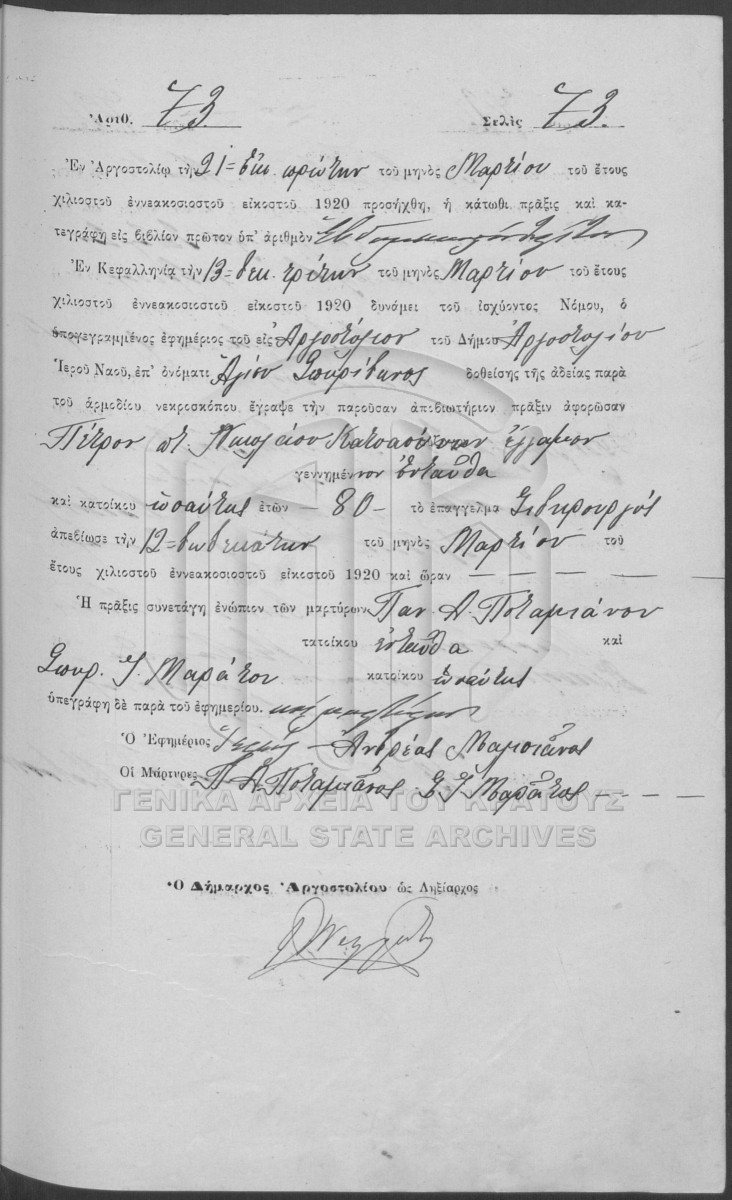 Ἀριθ. 73. Σελὶς 73.
Ἐν Ἀργοστολίῳ τὴν 21 = εἰκ. πρώτην τοῦ μηνὸς Μαρτίου τοῦ ἔτους
χιλιοστοῦ ἐννεακοσιοστοῦ εἰκοστοῦ 1920 προσήχθη, ἡ κάτωθι πρᾶξις καὶ κα-
τεγράφη εἰς βιβλίον πρῶτον ὑπ' ἀριθμὸν
Ἐν Κεφαλληνίᾳ τὴν 13 = δεκ. τρίτην τοῦ μηνὸς Μαρτίου τοῦ ἔτους
χιλιοστοῦ ἐννεακοσιοστοῦ εἰκοστοῦ 1920 δυνάμει τοῦ ἰσχύοντος Νόμου, ὁ
ὑπογεγραμμένος ἐφημέριος τοῦ εἰς Ἀργοστόλιον τοῦ Δήμου Ἀργοστολίου
Ἱεροῦ Ναοῦ, ἐπ' ὀνόματι Ἁγίου Σπυρίδωνος δοθείσης τῆς ἀδείας παρὰ
τοῦ ἁρμοδίου νεκροσκόπου ἔγραψε τὴν παροῦσαν ἀποβιωτήριον πρᾶξιν ἀφορῶσαν
Πέτρον ποτ. Νικολάου ἔγγαμον
γεννημένον ἐνταῦθα
καὶ κατοίκου ὡσαύτως ἐτῶν – 80 – τὸ ἐπάγγελμα Σιδηρουργός
ἀπεβίωσε τὴν 12 = δωδεκάτην τοῦ μηνὸς Μαρτίου τοῦ
ἔτους χιλιοστοῦ ἐννεακοσιοστοῦ εἰκοστοῦ 1920 καὶ ὥραν — — — — —
Ἡ πρᾶξις συνετάγη ἐνώπιον τῶν μαρτύρων Παν. Α. Ποταμιάνου
τατοίκου ἐνταῦθα καὶ
Σπυρ. Γ. Μαράτου κατοίκου ὡσαύτως
ὑπεγράφη δὲ παρὰ τοῦ ἐφημερίου. καὶ μαρτύρων
Ὁ Ἐφημέριος Ἱερεύς – Ἀνδρέας
Οἱ Μάρτυρες Π. Α. Ποταμιᾶνος Σ. Γ. Μαρᾶτος — — —
ΓΕΝΙΚΑ ΑΡΧΕΙΑ ΤΟΥ ΚΡΑΤΟΥΣ
GENERAL STATE ARCHIVES
Ὁ Δήμαρχος Ἀργοστολίου ὡς Ληξίαρχος